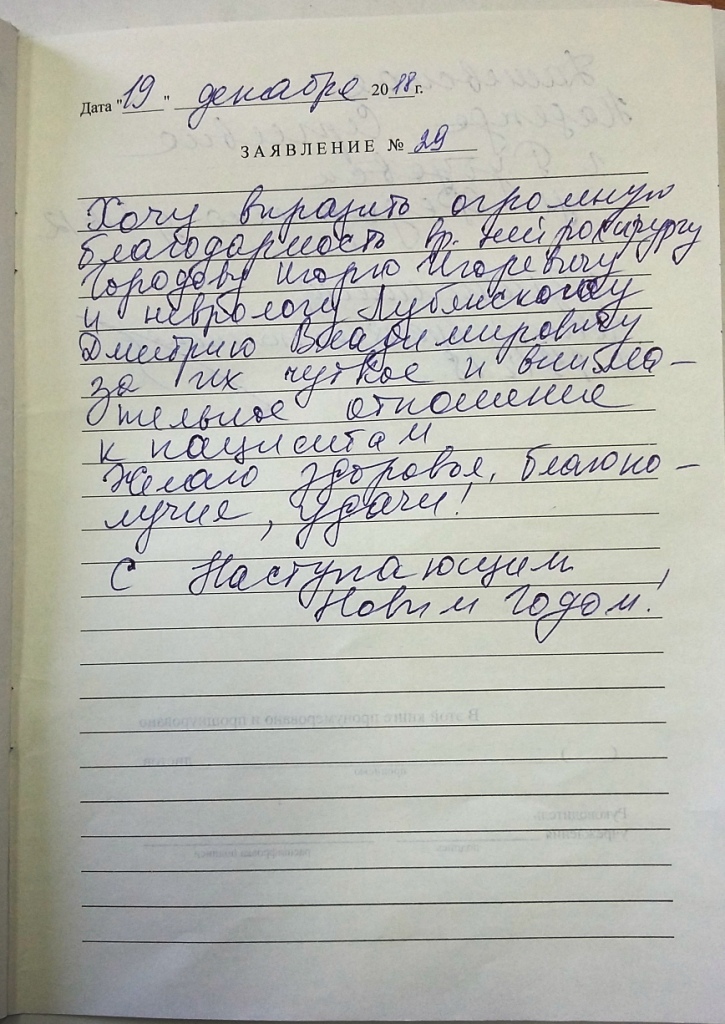 Дата "19" декабря 2018г.
ЗАЯВЛЕНИЕ № 29
Хочу выразить огромную
благодарность вр. нейрохирургу
Городову Игорю Игоревичу
и неврологу Лубянскому
Дмитрию Владимировичу
за их чуткое и внима-
тельное отношение
к пациентам.
Желаю здоровья, благопо-
лучие, удачи!
С Наступающим
Новым Годом!